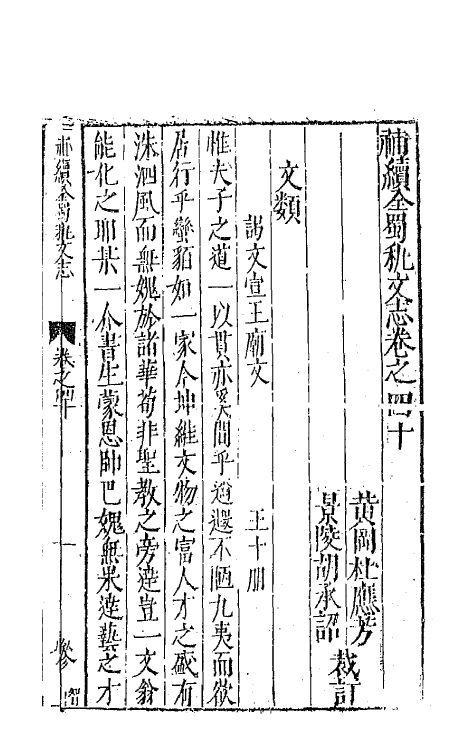 補續全蜀秇文志卷之四十
黄岡杜應芳
景陵胡承詔
裁訂
文類
謁文宣王廟文
王十朋
惟夫子之道一以貫亦奚間乎遐邇不陋九夷而欲
居行乎蠻貊如一家今坤維文物之富人才之盛有
洙泗風而無媿於諸華荀非聖教之旁達豈一文翁
能化之耶某一介書生蒙恩帥巴媿無果達藝之才
補續全蜀秇文志
卷之四十
一